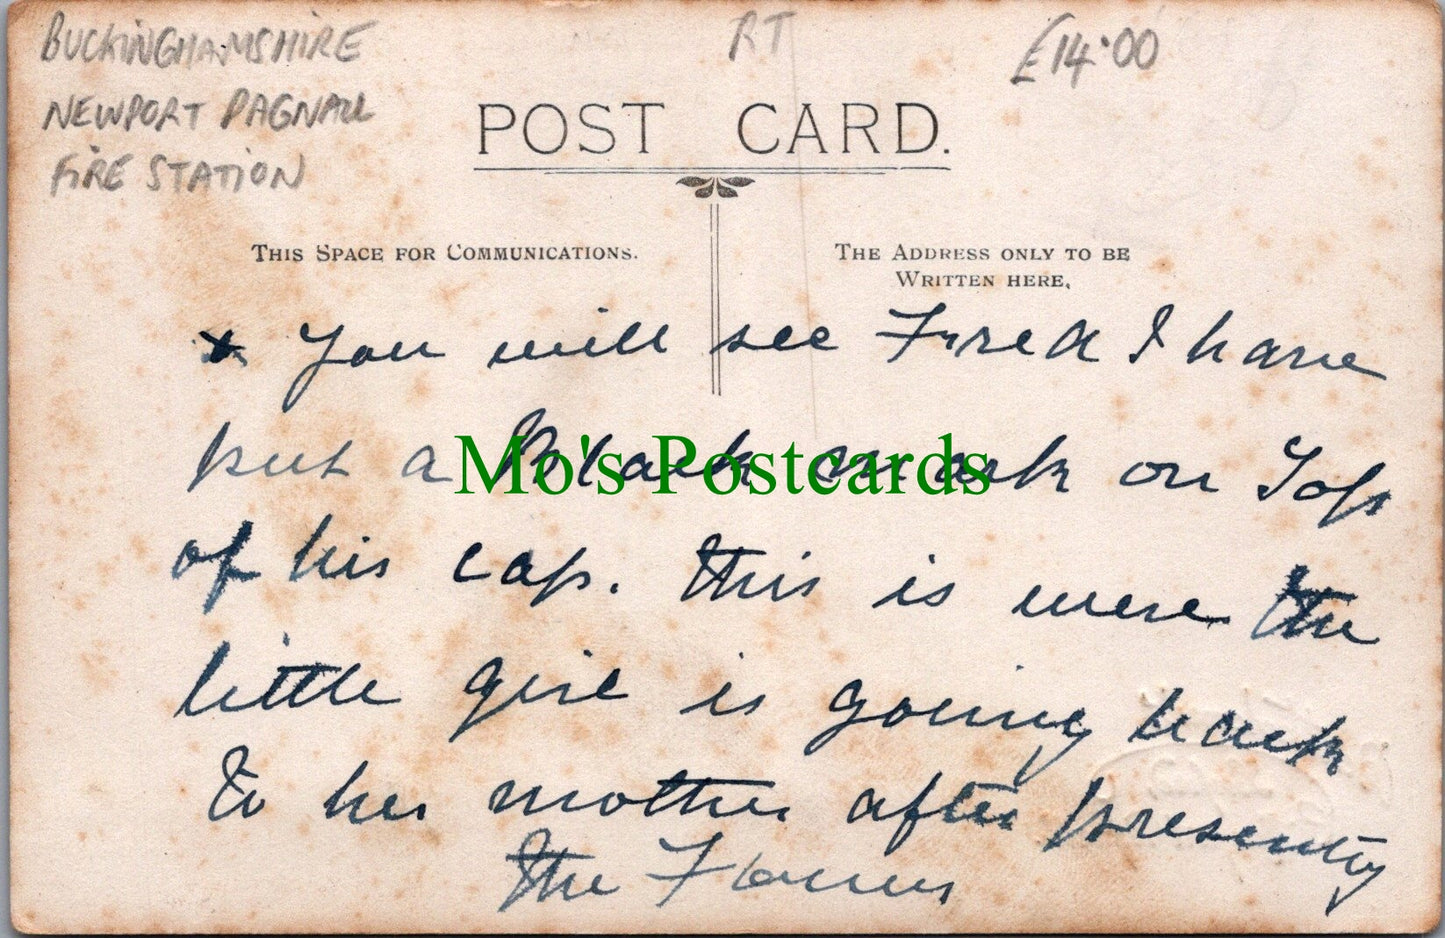 BUCKINGHAMSHIRE
NEWPORT PAGNALL
FIRE STATION
RT
£14·00
POST CARD.
THIS SPACE FOR COMMUNICATIONS.
THE ADDRESS ONLY TO BE
WRITTEN HERE.
x You will see Fred I have
put a Black mark on Top
of his cap. this is were the
little girl is going back
To her mother after presenting
the Flowers
Mo's Postcards